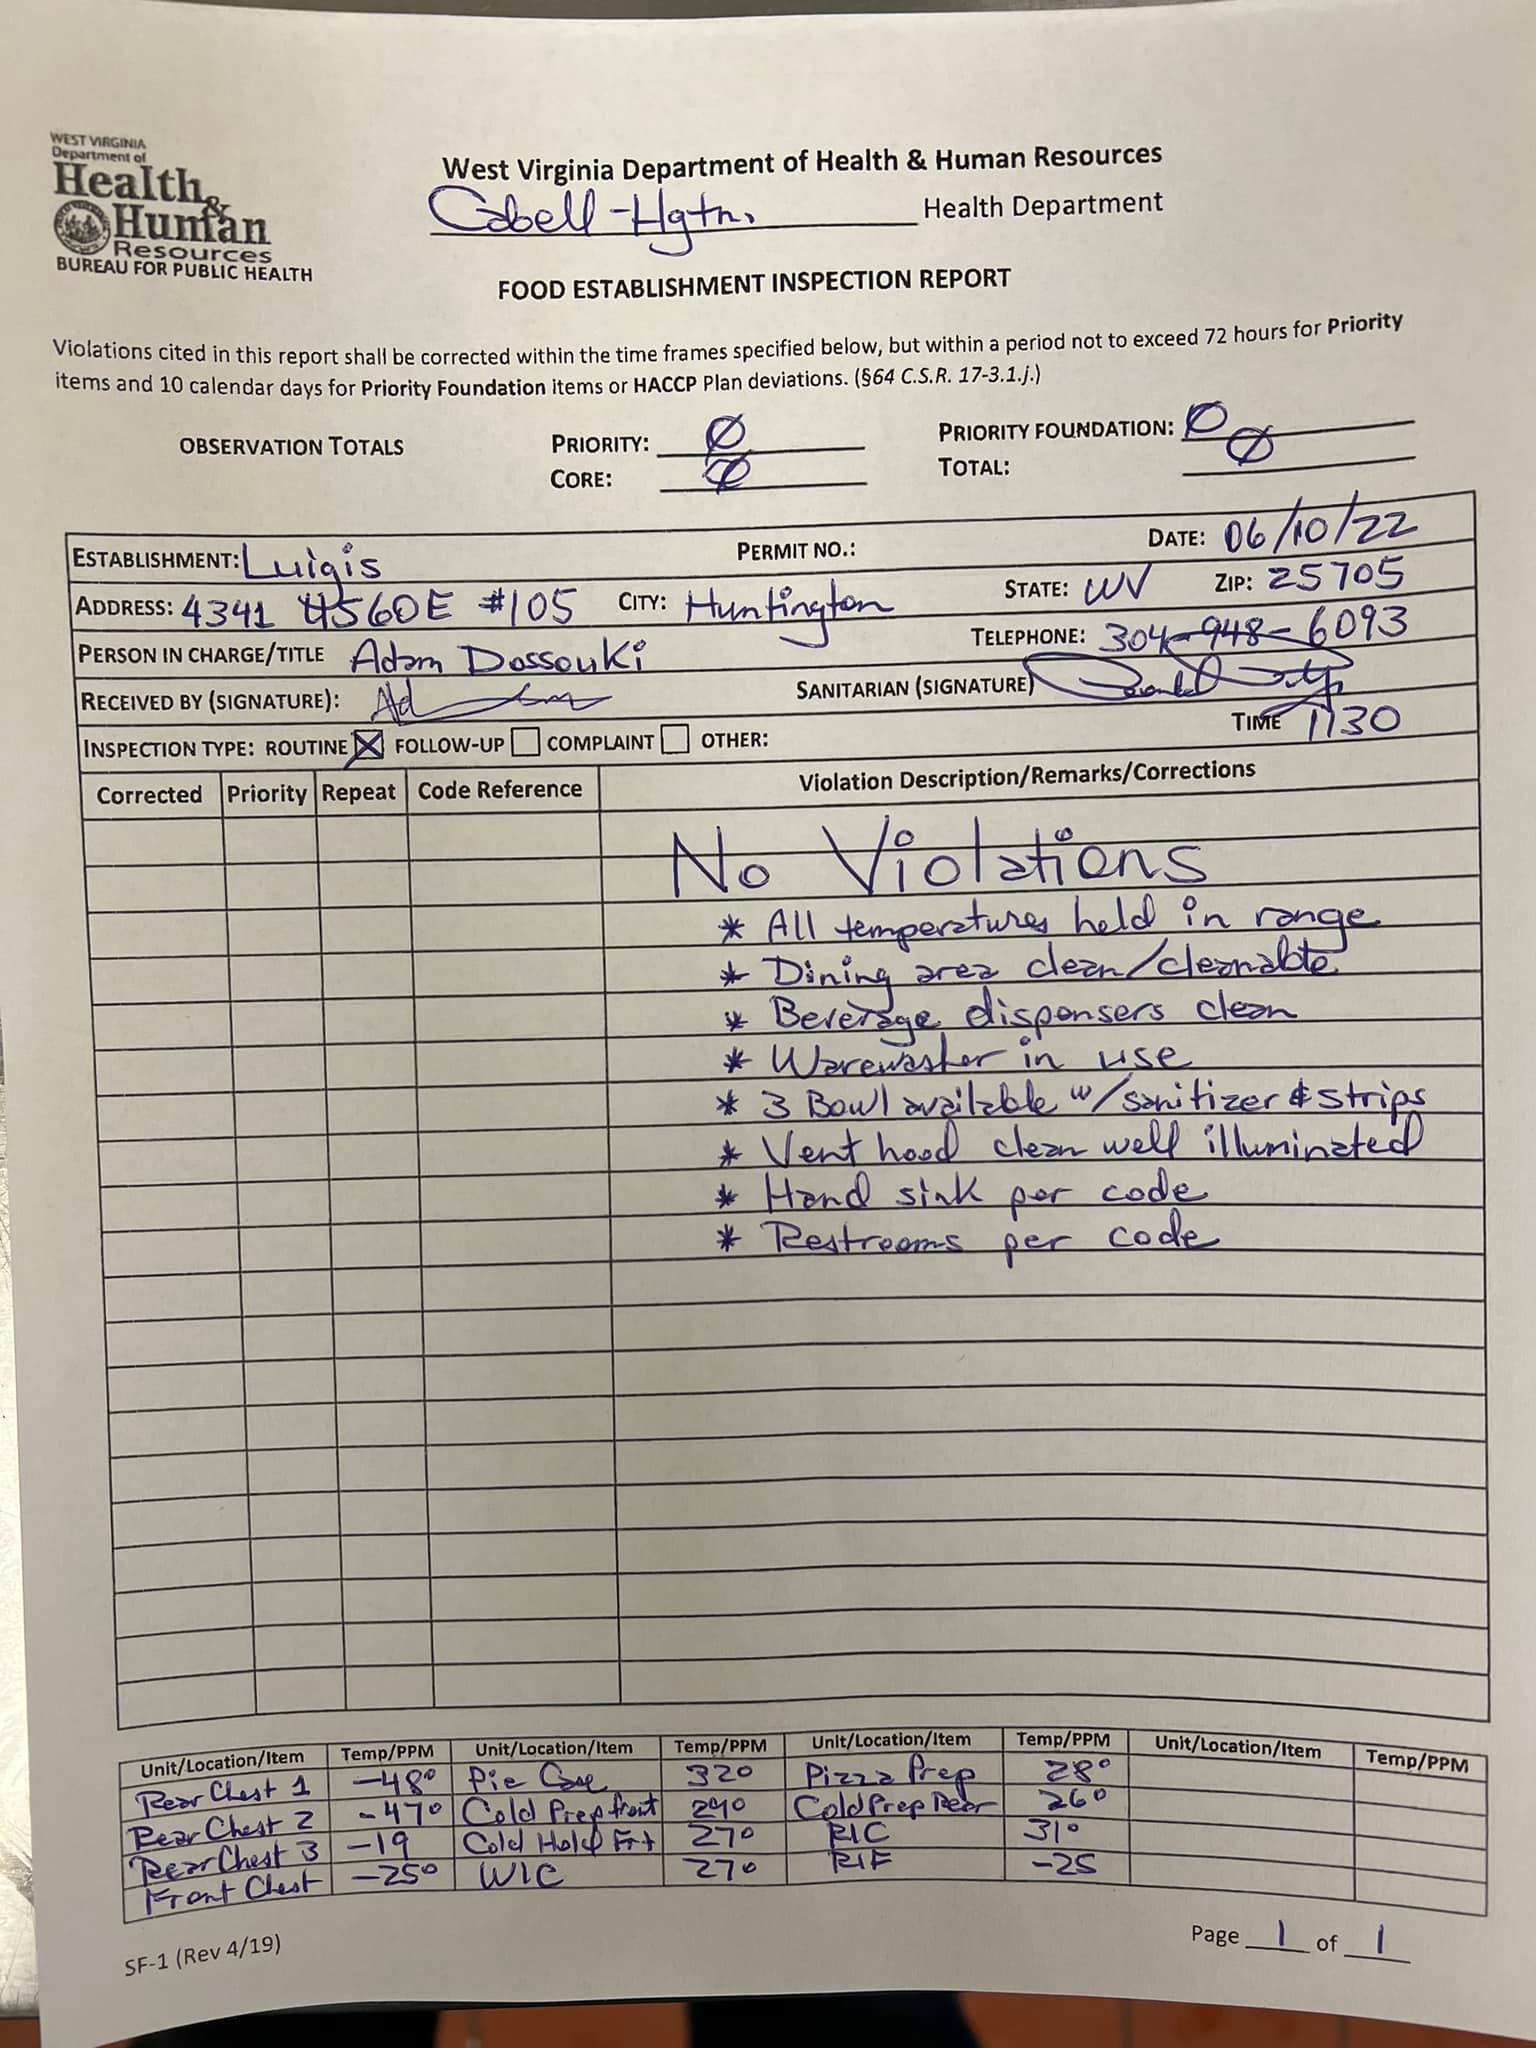 WEST VIRGINIA
Department of
Health &
Human
Resources
BUREAU FOR PUBLIC HEALTH
West Virginia Department of Health & Human Resources
Cabell-Hgtn. Health Department
FOOD ESTABLISHMENT INSPECTION REPORT
Violations cited in this report shall be corrected within the time frames specified below, but within a period not to exceed 72 hours for Priority
items and 10 calendar days for Priority Foundation items or HACCP Plan deviations. (§64 C.S.R. 17-3.1.j.)
OBSERVATION TOTALS PRIORITY: Ø PRIORITY FOUNDATION: Ø
CORE: Ø TOTAL: Ø
ESTABLISHMENT: Luigis PERMIT NO.: DATE: 06/10/22
ADDRESS: 4341 US60E #105 CITY: Huntington STATE: WV ZIP: 25705
PERSON IN CHARGE/TITLE Adam Dossouki TELEPHONE: 304-948-6093
RECEIVED BY (SIGNATURE): SANITARIAN (SIGNATURE)
INSPECTION TYPE: ROUTINE X FOLLOW-UP COMPLAINT OTHER: TIME 1130
Corrected Priority Repeat Code Reference Violation Description/Remarks/Corrections
No Violations
* All temperatures held in range
* Dining area clean/cleanable
* Beverage dispensers clean
* Warewasher in use
* 3 Bowl available w/sanitizer & strips
* Vent hood clean well illuminated
* Hand sink per code
* Restrooms per code
Unit/Location/Item Temp/PPM Unit/Location/Item Temp/PPM Unit/Location/Item Temp/PPM Unit/Location/Item Temp/PPM
Rear Chest 1 -48° Pie Case 32° Pizza Prep 28°
Rear Chest 2 -47° Cold Prep front 29° Cold Prep Rear 26°
Rear Chest 3 -19 Cold Hold Frt 27° RIC 31°
Front Chest -25° WIC 27° RIF -25
SF-1 (Rev 4/19)
Page 1 of 1